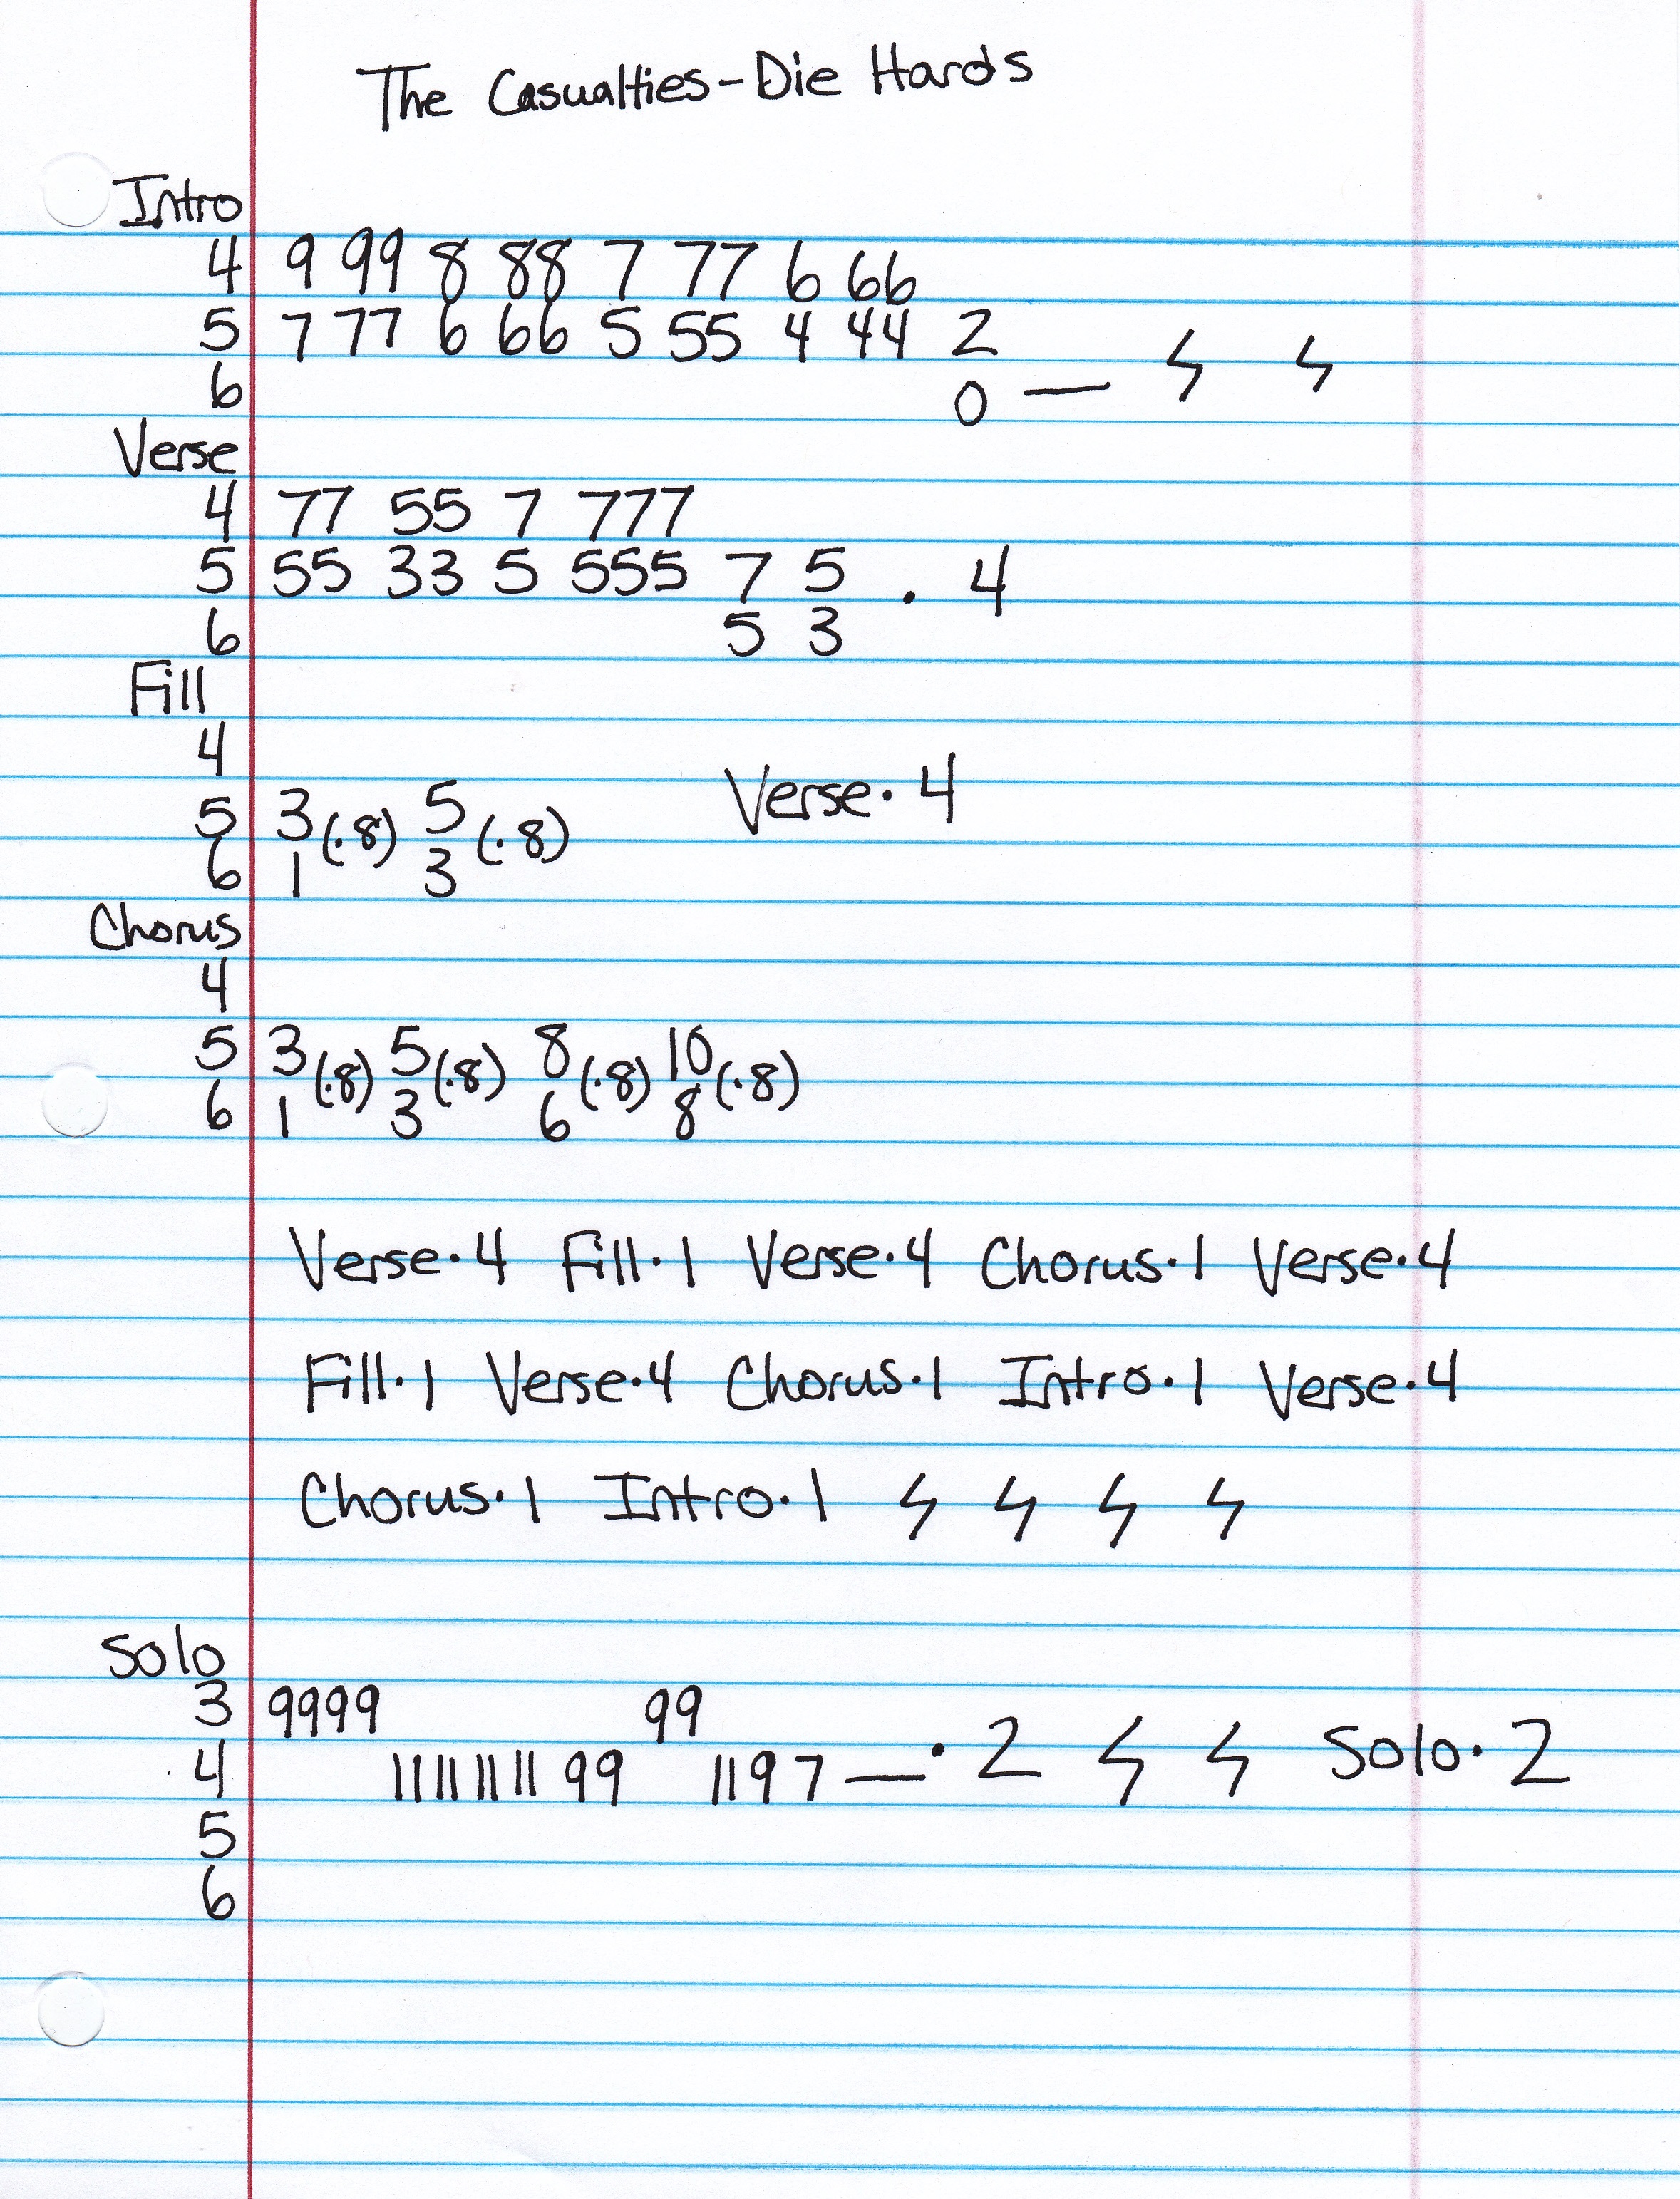 The Casualties-Die Hards
Intro
4 9 99 8 88 7 77 6 66
5 7 77 6 66 5 55 4 44 2
6 0 — ϟ ϟ
Verse
4 77 55 7 777
5 55 33 5 555 7 5 · 4
6 5 3
Fill
4
Verse·4
5 3 (·8) 5 (·8)
6 1 3
Chorus
4
5 3 (·8) 5 (·8) 8 (·8) 10 (·8)
6 1 3 6 8
Verse·4 Fill·1 Verse·4 Chorus·1 Verse·4
Fill·1 Verse·4 Chorus·1 Intro·1 Verse·4
Chorus·1 Intro·1 ϟ ϟ ϟ ϟ
Solo
3 9999 99
4 11111111 99 1197 — · 2 ϟ ϟ Solo·2
5
6